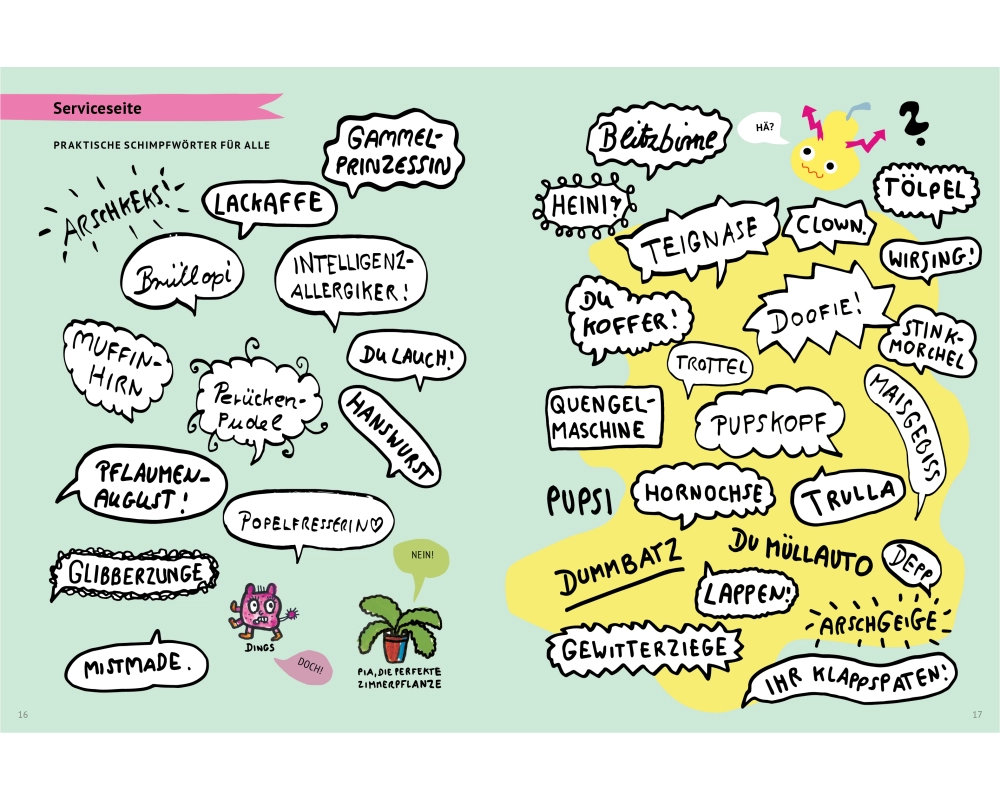 Serviceseite
PRAKTISCHE SCHIMPFWÖRTER FÜR ALLE
GAMMEL-
PRINZESSIN
ARSCHKEKS!
LACKAFFE
Brüllopi
INTELLIGENZ-
ALLERGIKER!
MUFFIN-
HIRN
Perücken-
Pudel
DU LAUCH!
HANSWURST
PFLAUMEN-
AUGUST!
POPELFRESSERIN♡
GLIBBERZUNGE
NEIN!
DINGS
DOCH!
PIA, DIE PERFEKTE
ZIMMERPFLANZE
MISTMADE.
16
Blitzbirne
HÄ?
?
HEINI?
TÖLPEL
TEIGNASE
CLOWN.
WIRSING!
DU
KOFFER!
DOOFIE!
STINK-
MORCHEL
TROTTEL
MAISGEBISS
QUENGEL-
MASCHINE
PUPSKOPF
PUPSI
HORNOCHSE
TRULLA
DUMMBATZ
DU MÜLLAUTO
DEPP
LAPPEN!
ARSCHGEIGE
GEWITTERZIEGE
IHR KLAPPSPATEN!
17